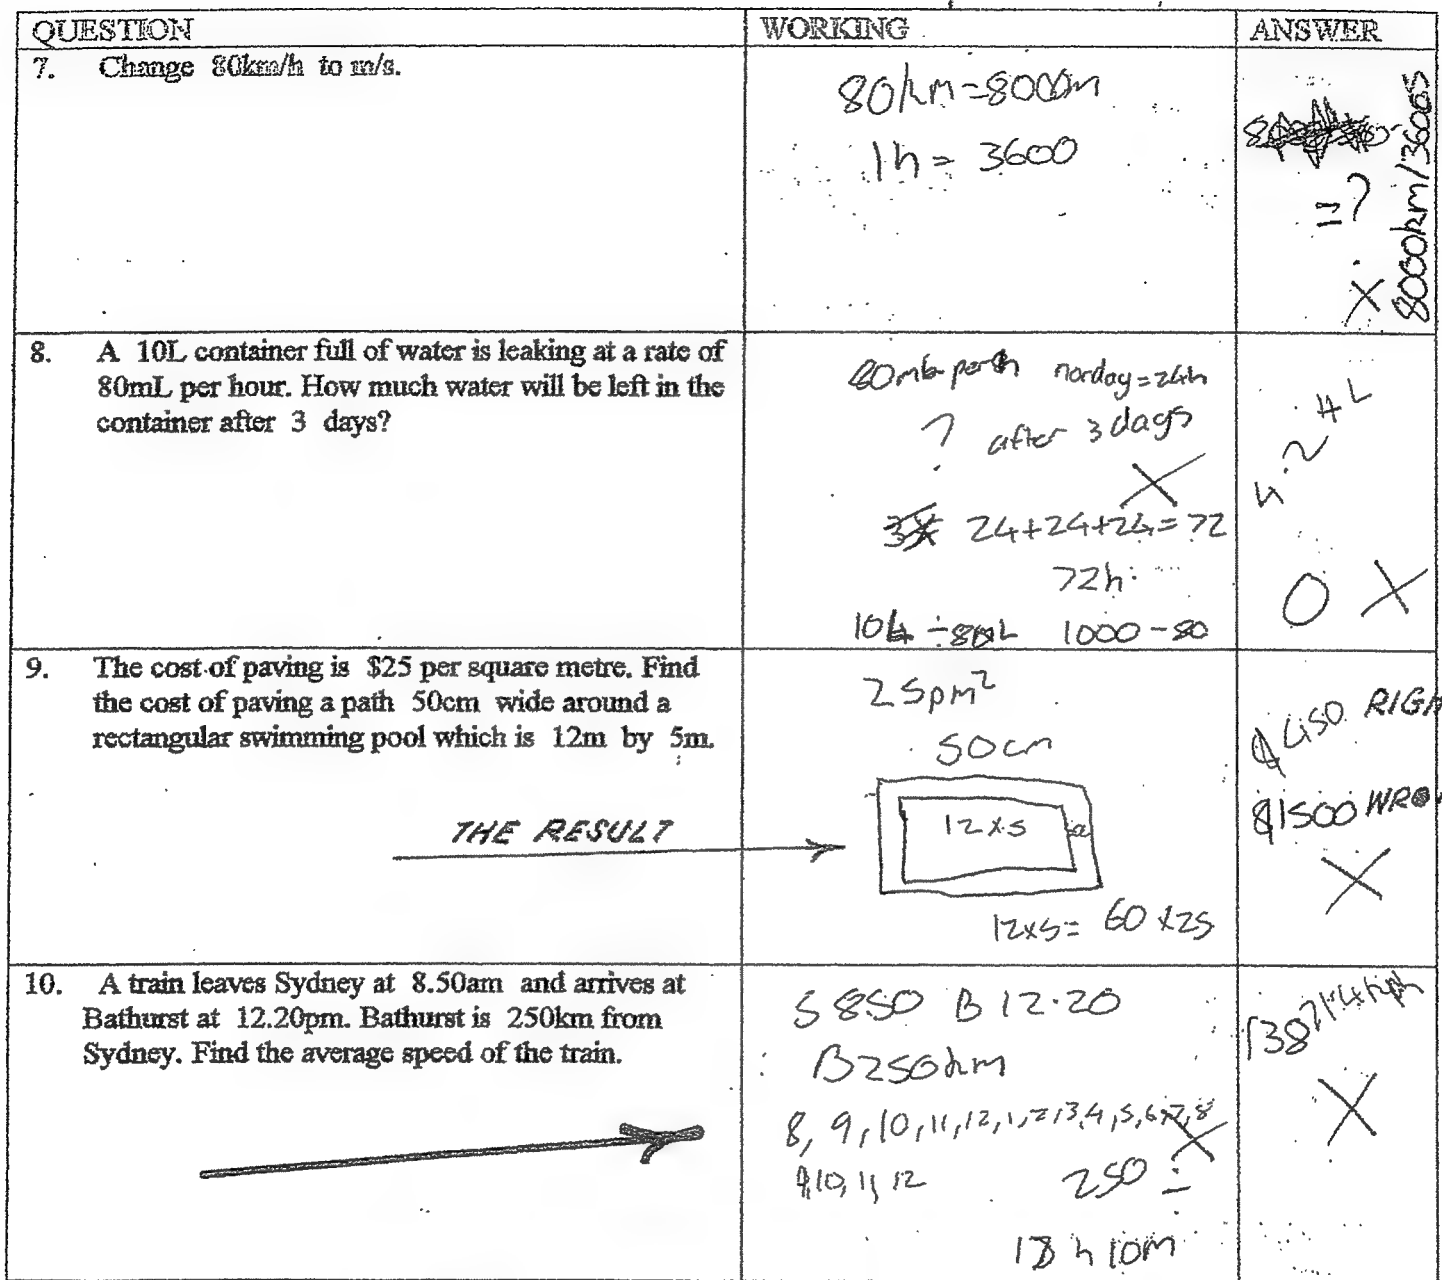 QUESTION WORKING ANSWER
7. Change 80km/h to m/s.
80km=8000m
1h = 3600
8000km/3600s
=?
8. A 10L container full of water is leaking at a rate of
80mL per hour. How much water will be left in the
container after 3 days?
80mL per h
day=24h
? after 3 days
24+24+24=72
72h
10L ÷80mL 1000-80
4.24L
0
9. The cost of paving is $25 per square metre. Find
the cost of paving a path 50cm wide around a
rectangular swimming pool which is 12m by 5m.
THE RESULT
25pm²
50cm
12x5
12x5= 60x25
$450 RIGH
$1500 WRO
10. A train leaves Sydney at 8.50am and arrives at
Bathurst at 12.20pm. Bathurst is 250km from
Sydney. Find the average speed of the train.
S 850 B 12.20
B250km
8, 9, 10, 11, 12, 1, 2, 3, 4, 5, 6, 7, 8
9, 10, 11, 12
250 ÷
h 10m
138
71.4kph